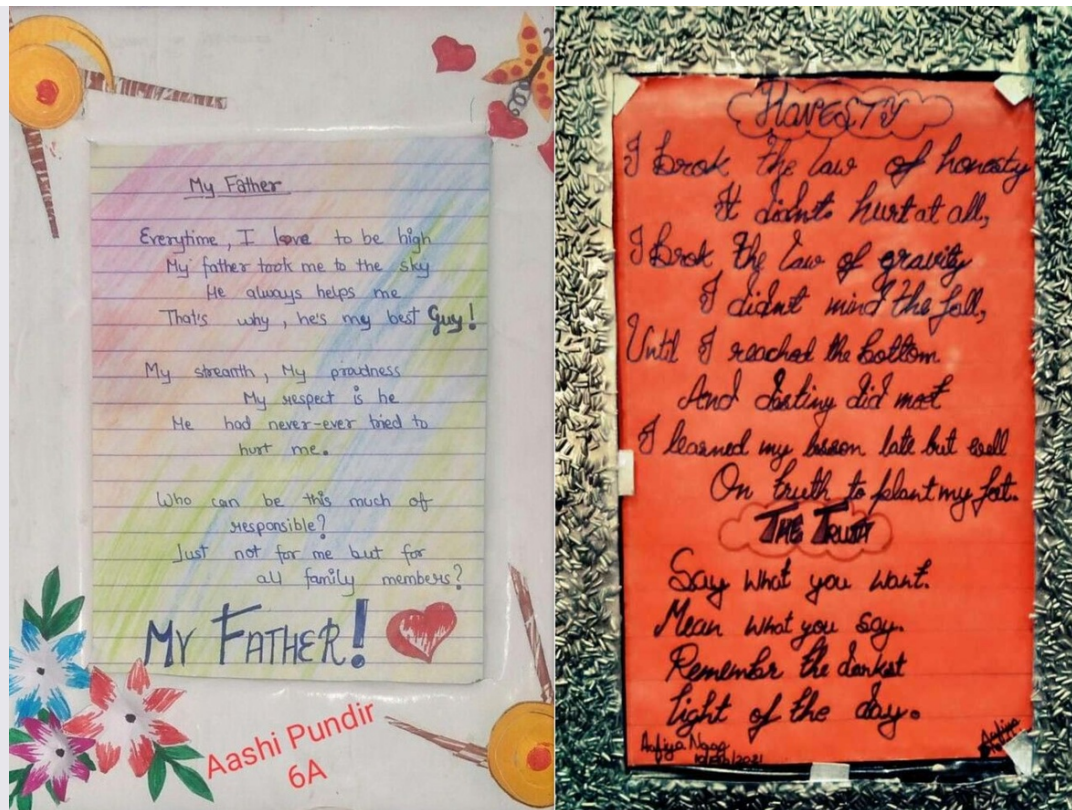 My Father
Everytime, I love to be high
My father took me to the sky
He always helps me
That's why, he's my best Guy!
My streanth, My proudness
My respect is he
He had never-ever tried to
hurt me.
Who can be this much of
responsible?
Just not for me but for
all family members?
MY FATHER!
Aashi Pundir
6A
HONESTY
I brok the law of honesty
It didnt hurt at all,
I Brok the Law of gravity
I didnt mind the fall,
Until I reached the bottom
And destiny did meet
I learned my lesson late but well
On truth to plant my
THE TRUTH
Say what you want.
Mean what you say.
Remember the darkest
light of the day.
Aafiya
Aafiya